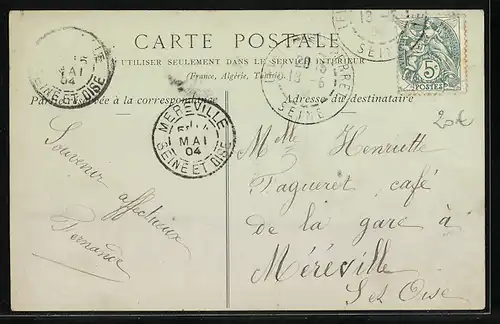 CARTE POSTALE
A UTILISER SEULEMENT DANS LE SERVICE INTÉRIEUR
(France, Algérie, Tunisie).
Partie réservée à la correspondance
Adresse du destinataire
5c
POSTES
SEINE
SEINE
MAI
04
SEINE ET OISE
MEREVILLE
MAI
04
SEINE ET OISE
20€
Souvenir
affectueux
Fernande
Melle Henriette
Pagueret café
de la gare à
Méréville
S et Oise